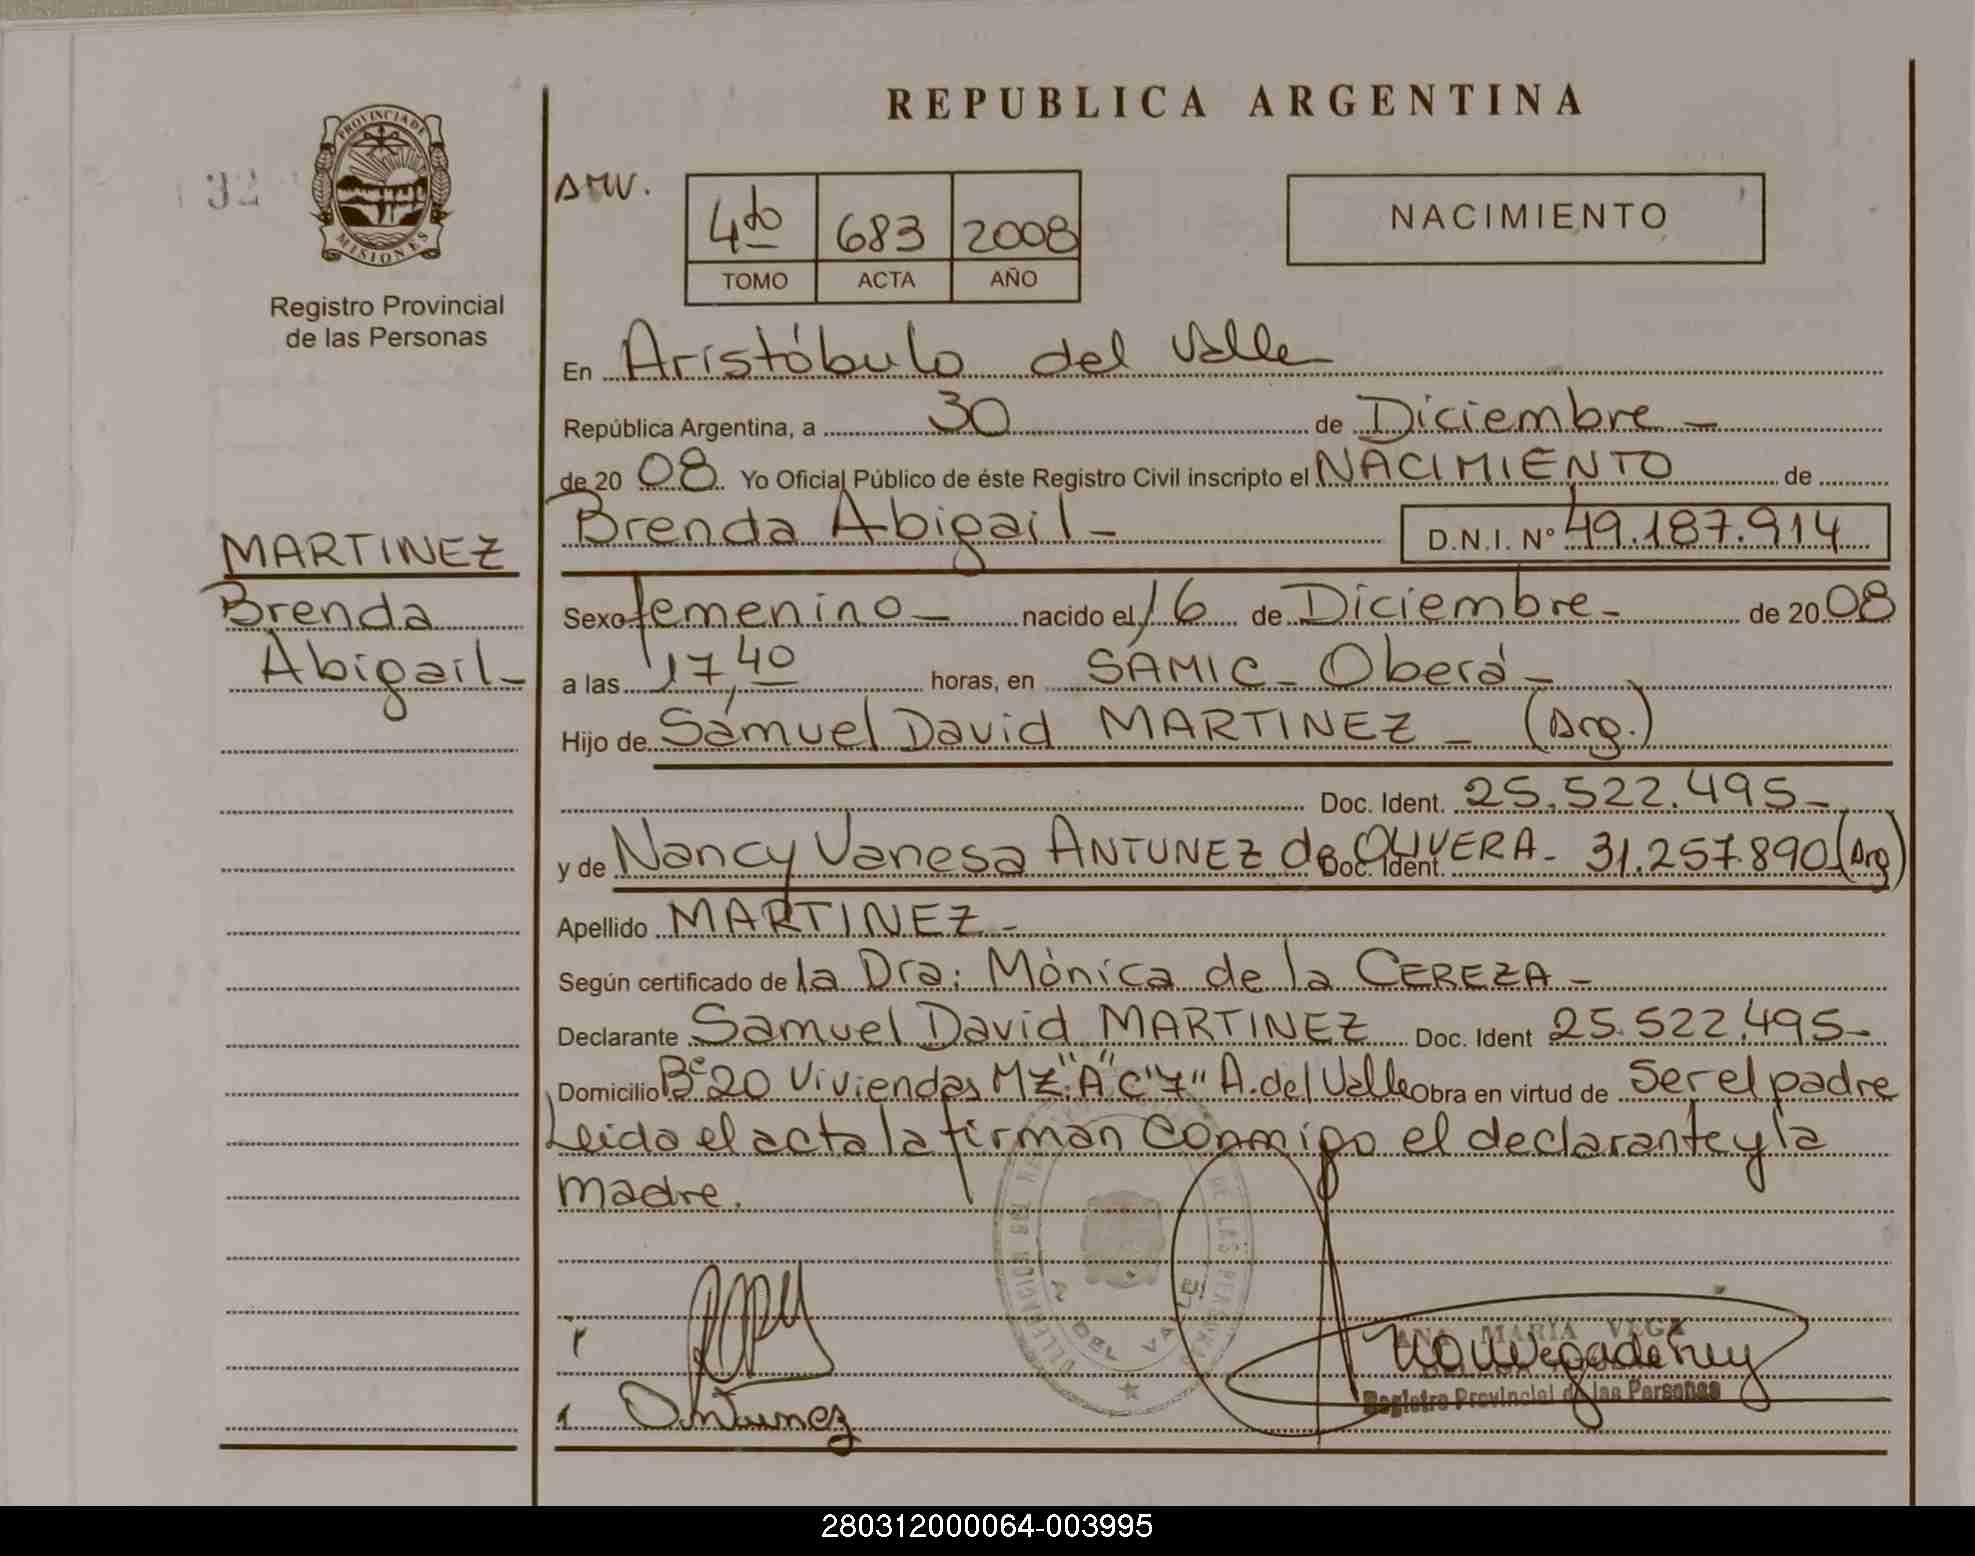 REPUBLICA ARGENTINA
PROVINCIA DE
MISIONES
Registro Provincial
de las Personas
AMV.
4to 683 2008
TOMO ACTA AÑO
NACIMIENTO
En Aristóbulo del Valle
República Argentina, a 30 de Diciembre -
de 20 08 Yo Oficial Público de éste Registro Civil inscripto el NACIMIENTO de
Brenda Abigail - D.N.I. Nº 49.187.914
MARTINEZ
Brenda
Abigail -
Sexo femenino - nacido el 16 de Diciembre - de 20 08
a las 17,40 horas, en SAMIC - Oberá -
Hijo de Samuel David MARTINEZ - (Arg.)
Doc. Ident. 25.522.495 -
y de Nancy Vanesa ANTUNEZ de OLIVERA - Doc. Ident. 31.257.890 (Arg)
Apellido MARTINEZ -
Según certificado de la Dra: Mónica de la CEREZA -
Declarante Samuel David MARTINEZ Doc. Ident 25.522.495 -
Domicilio Bº 20 Viviendas MZ "A" C "7" A. del Valle Obra en virtud de Ser el padre
Leida el acta la firman conmigo el declarante y la
madre.
DELEGACION DEL REGISTRO DE LAS PERSONAS
A. DEL VALLE
ANA MARIA VEGA
Registro Provincial de las Personas
Antunez
280312000064-003995